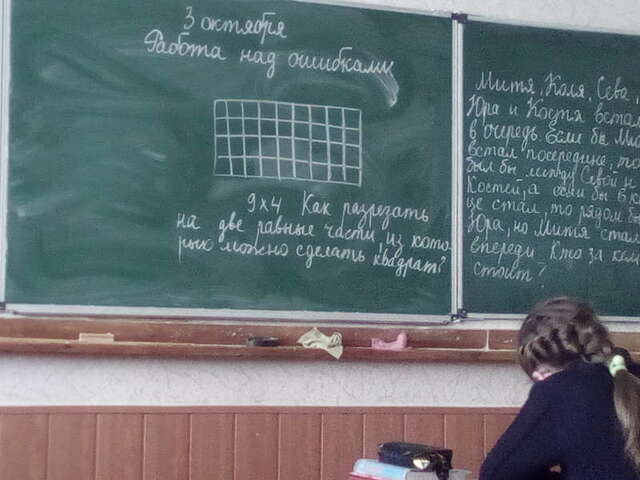 3 октября
Работа над ошибками
9х4 Как разрезать
на две равные части, из кото
рых можно сделать квадрат?
Митя, Коля, Сева
Юра и Костя встал
в очередь. Если бы Ми
встал посередине, то
был бы между Севой и
Костей, а если бы в ко
це стал, то рядом б
Юра, но Митя стал
впереди. Кто за кем
стоит?